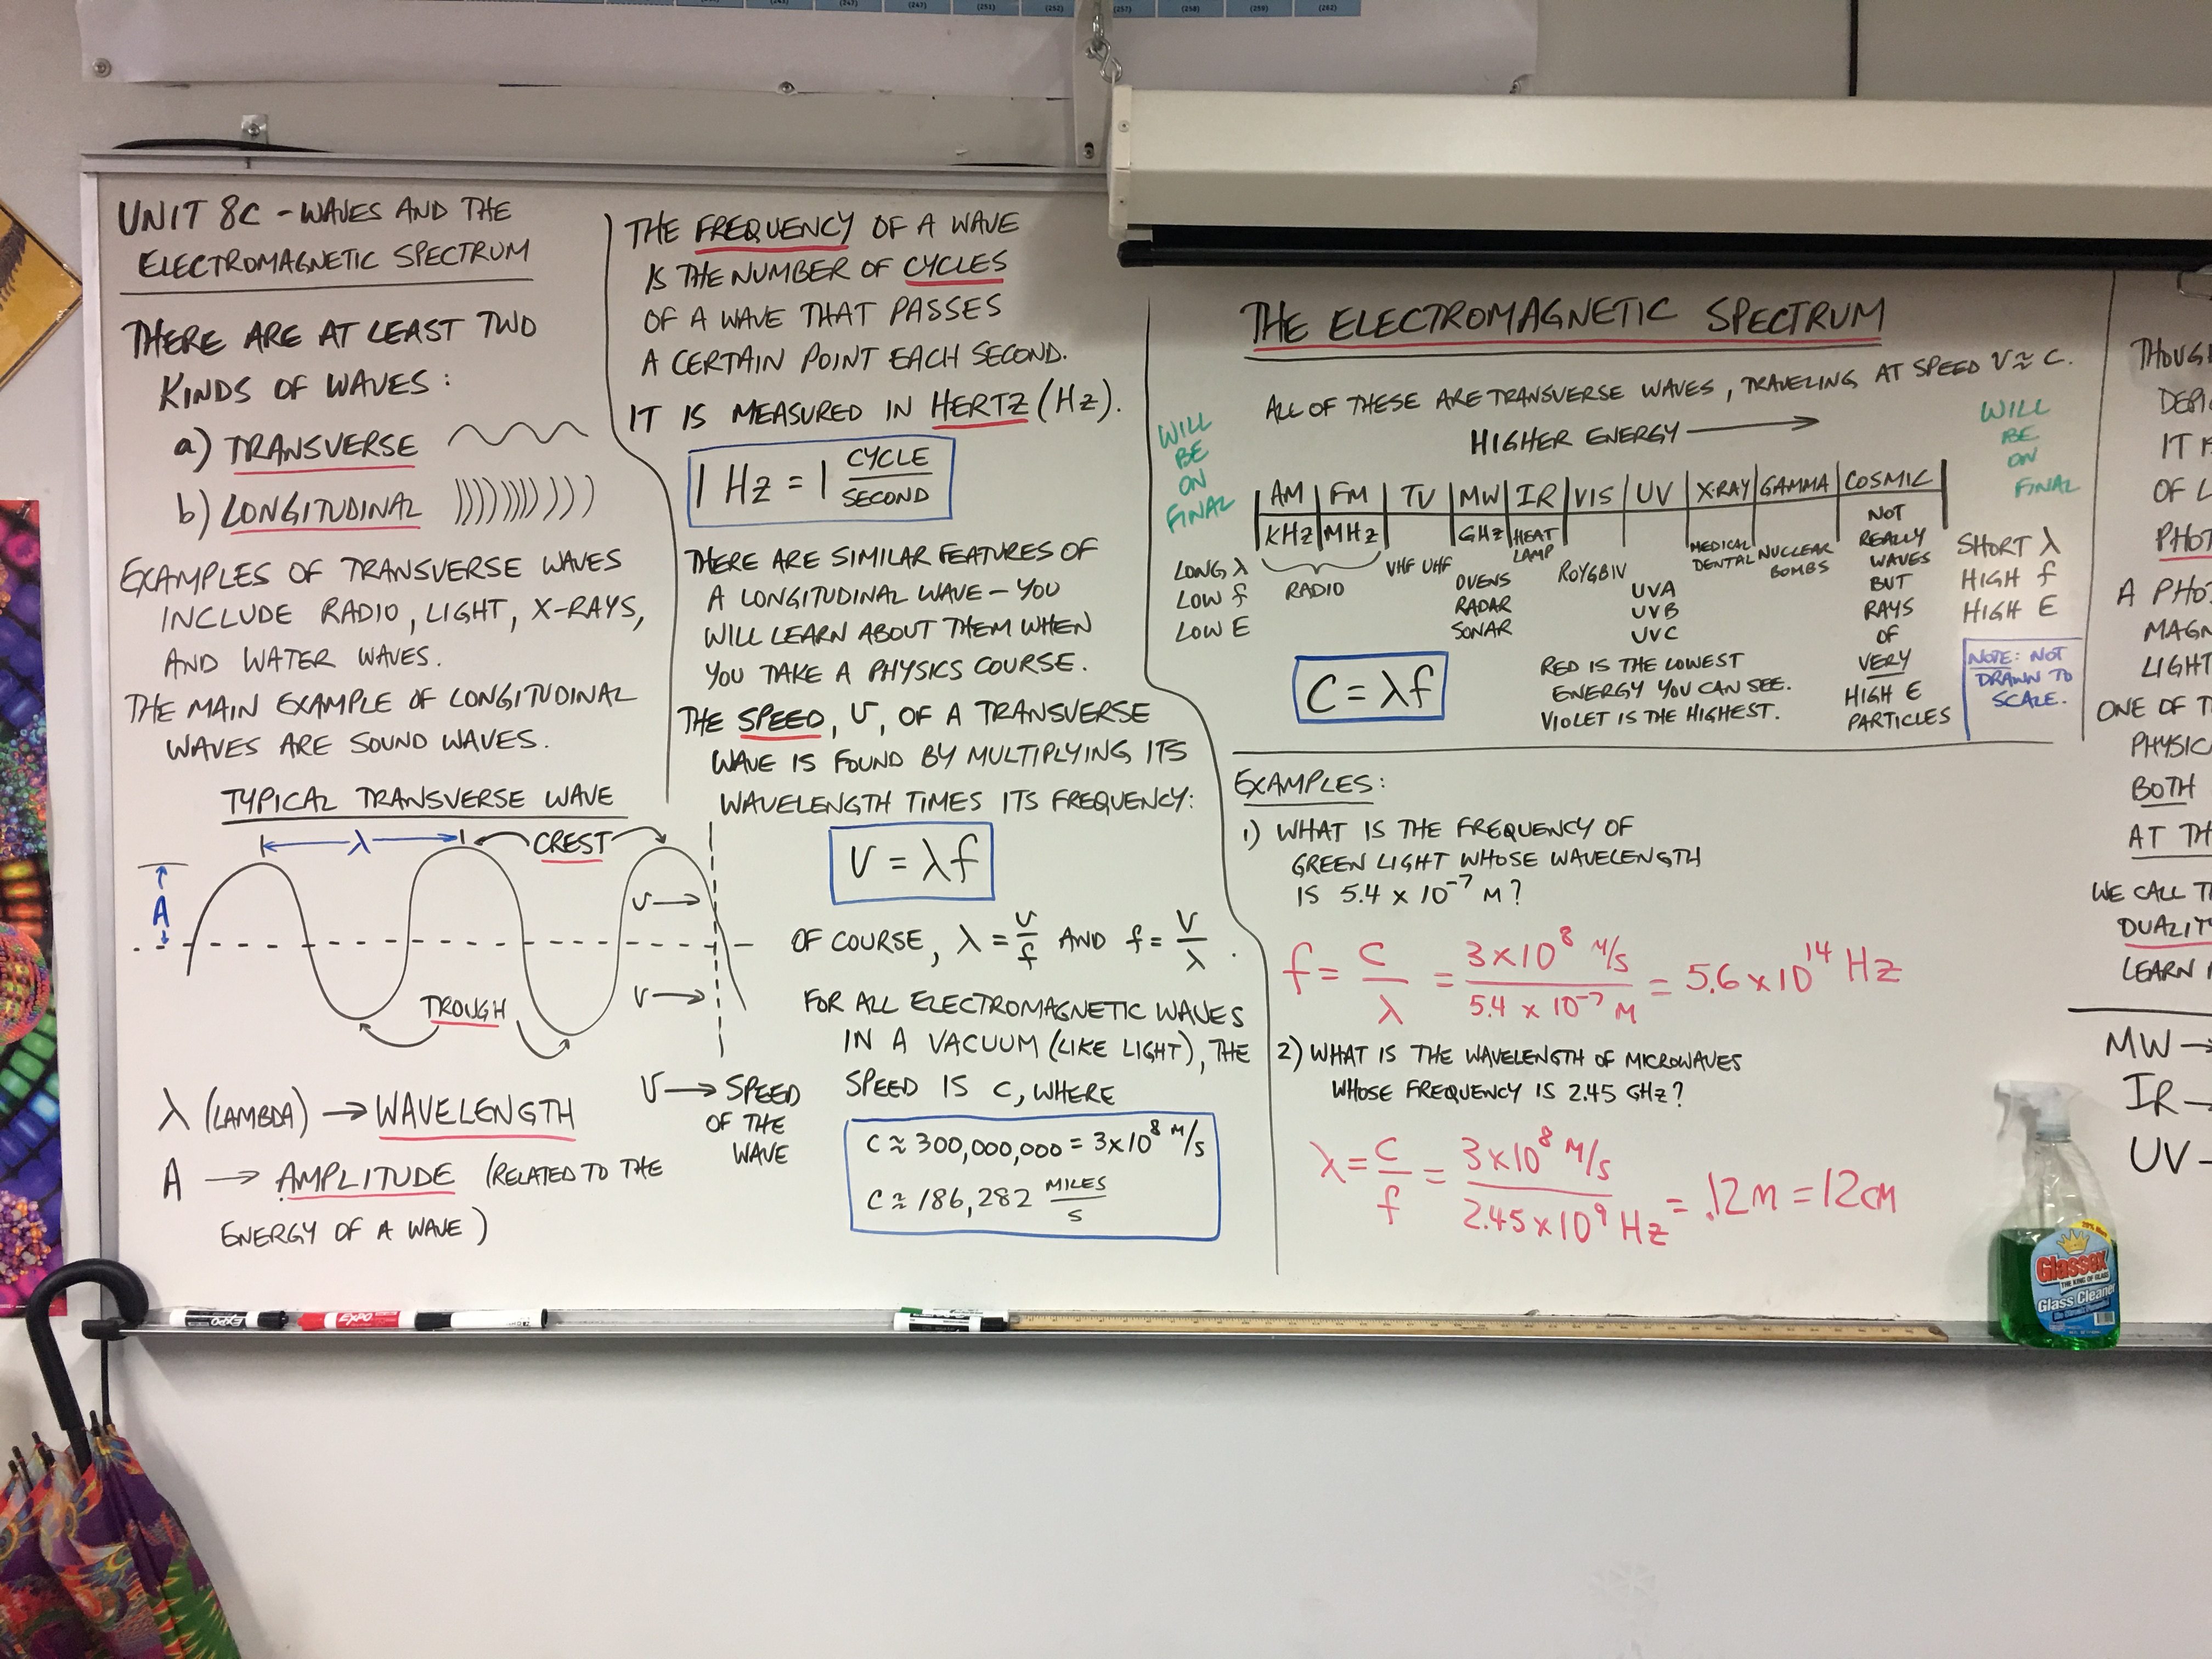 (247)
(247)
(251)
(252)
(257)
(258)
(259)
(262)
UNIT 8C - WAVES AND THE
ELECTROMAGNETIC SPECTRUM
THERE ARE AT LEAST TWO
KINDS OF WAVES:
a) TRANSVERSE
b) LONGITUDINAL
EXAMPLES OF TRANSVERSE WAVES
INCLUDE RADIO, LIGHT, X-RAYS,
AND WATER WAVES.
THE MAIN EXAMPLE OF LONGITUDINAL
WAVES ARE SOUND WAVES.
TYPICAL TRANSVERSE WAVE
λ
CREST
A
v →
v →
TROUGH
λ (LAMBDA) → WAVELENGTH
A → AMPLITUDE (RELATED TO THE
ENERGY OF A WAVE)
v → SPEED
OF THE
WAVE
THE FREQUENCY OF A WAVE
IS THE NUMBER OF CYCLES
OF A WAVE THAT PASSES
A CERTAIN POINT EACH SECOND.
IT IS MEASURED IN HERTZ (Hz).
1 Hz = 1 CYCLE/SECOND
THERE ARE SIMILAR FEATURES OF
A LONGITUDINAL WAVE - YOU
WILL LEARN ABOUT THEM WHEN
YOU TAKE A PHYSICS COURSE.
THE SPEED, v, OF A TRANSVERSE
WAVE IS FOUND BY MULTIPLYING ITS
WAVELENGTH TIMES ITS FREQUENCY:
v = λf
OF COURSE, λ = v/f AND f = v/λ.
FOR ALL ELECTROMAGNETIC WAVES
IN A VACUUM (LIKE LIGHT), THE
SPEED IS C, WHERE
C ≈ 300,000,000 = 3x10⁸ M/S
C ≈ 186,282 MILES/S
THE ELECTROMAGNETIC SPECTRUM
ALL OF THESE ARE TRANSVERSE WAVES, TRAVELING AT SPEED V ≈ C.
HIGHER ENERGY →
WILL
BE
ON
FINAL
WILL
BE
ON
FINAL
AM FM TV MW IR VIS UV X-RAY GAMMA COSMIC
KHz MHz GHz HEAT
LAMP
RADIO
VHF UHF
OVENS
RADAR
SONAR
ROYGBIV
UVA
UVB
UVC
MEDICAL
DENTAL
NUCLEAR
BOMBS
NOT
REALLY
WAVES
BUT
RAYS
OF
VERY
HIGH E
PARTICLES
LONG λ
LOW f
LOW E
SHORT λ
HIGH f
HIGH E
NOTE: NOT
DRAWN TO
SCALE.
C = λf
RED IS THE LOWEST
ENERGY YOU CAN SEE.
VIOLET IS THE HIGHEST.
EXAMPLES:
1) WHAT IS THE FREQUENCY OF
GREEN LIGHT WHOSE WAVELENGTH
IS 5.4 x 10⁻⁷ M?
f = C/λ = 3x10⁸ M/S / 5.4 x 10⁻⁷ M = 5.6 x 10¹⁴ Hz
2) WHAT IS THE WAVELENGTH OF MICROWAVES
WHOSE FREQUENCY IS 2.45 GHz?
λ = C/f = 3x10⁸ M/S / 2.45x10⁹ Hz = .12M = 12CM
IT
OF
A
LIGHT
ONE OF
BOTH
AT
WE CALL
LEARN
MW →
IR →
UV
EXPO
EXPO
Glassex
THE KING OF GLASS
Glass Cleaner